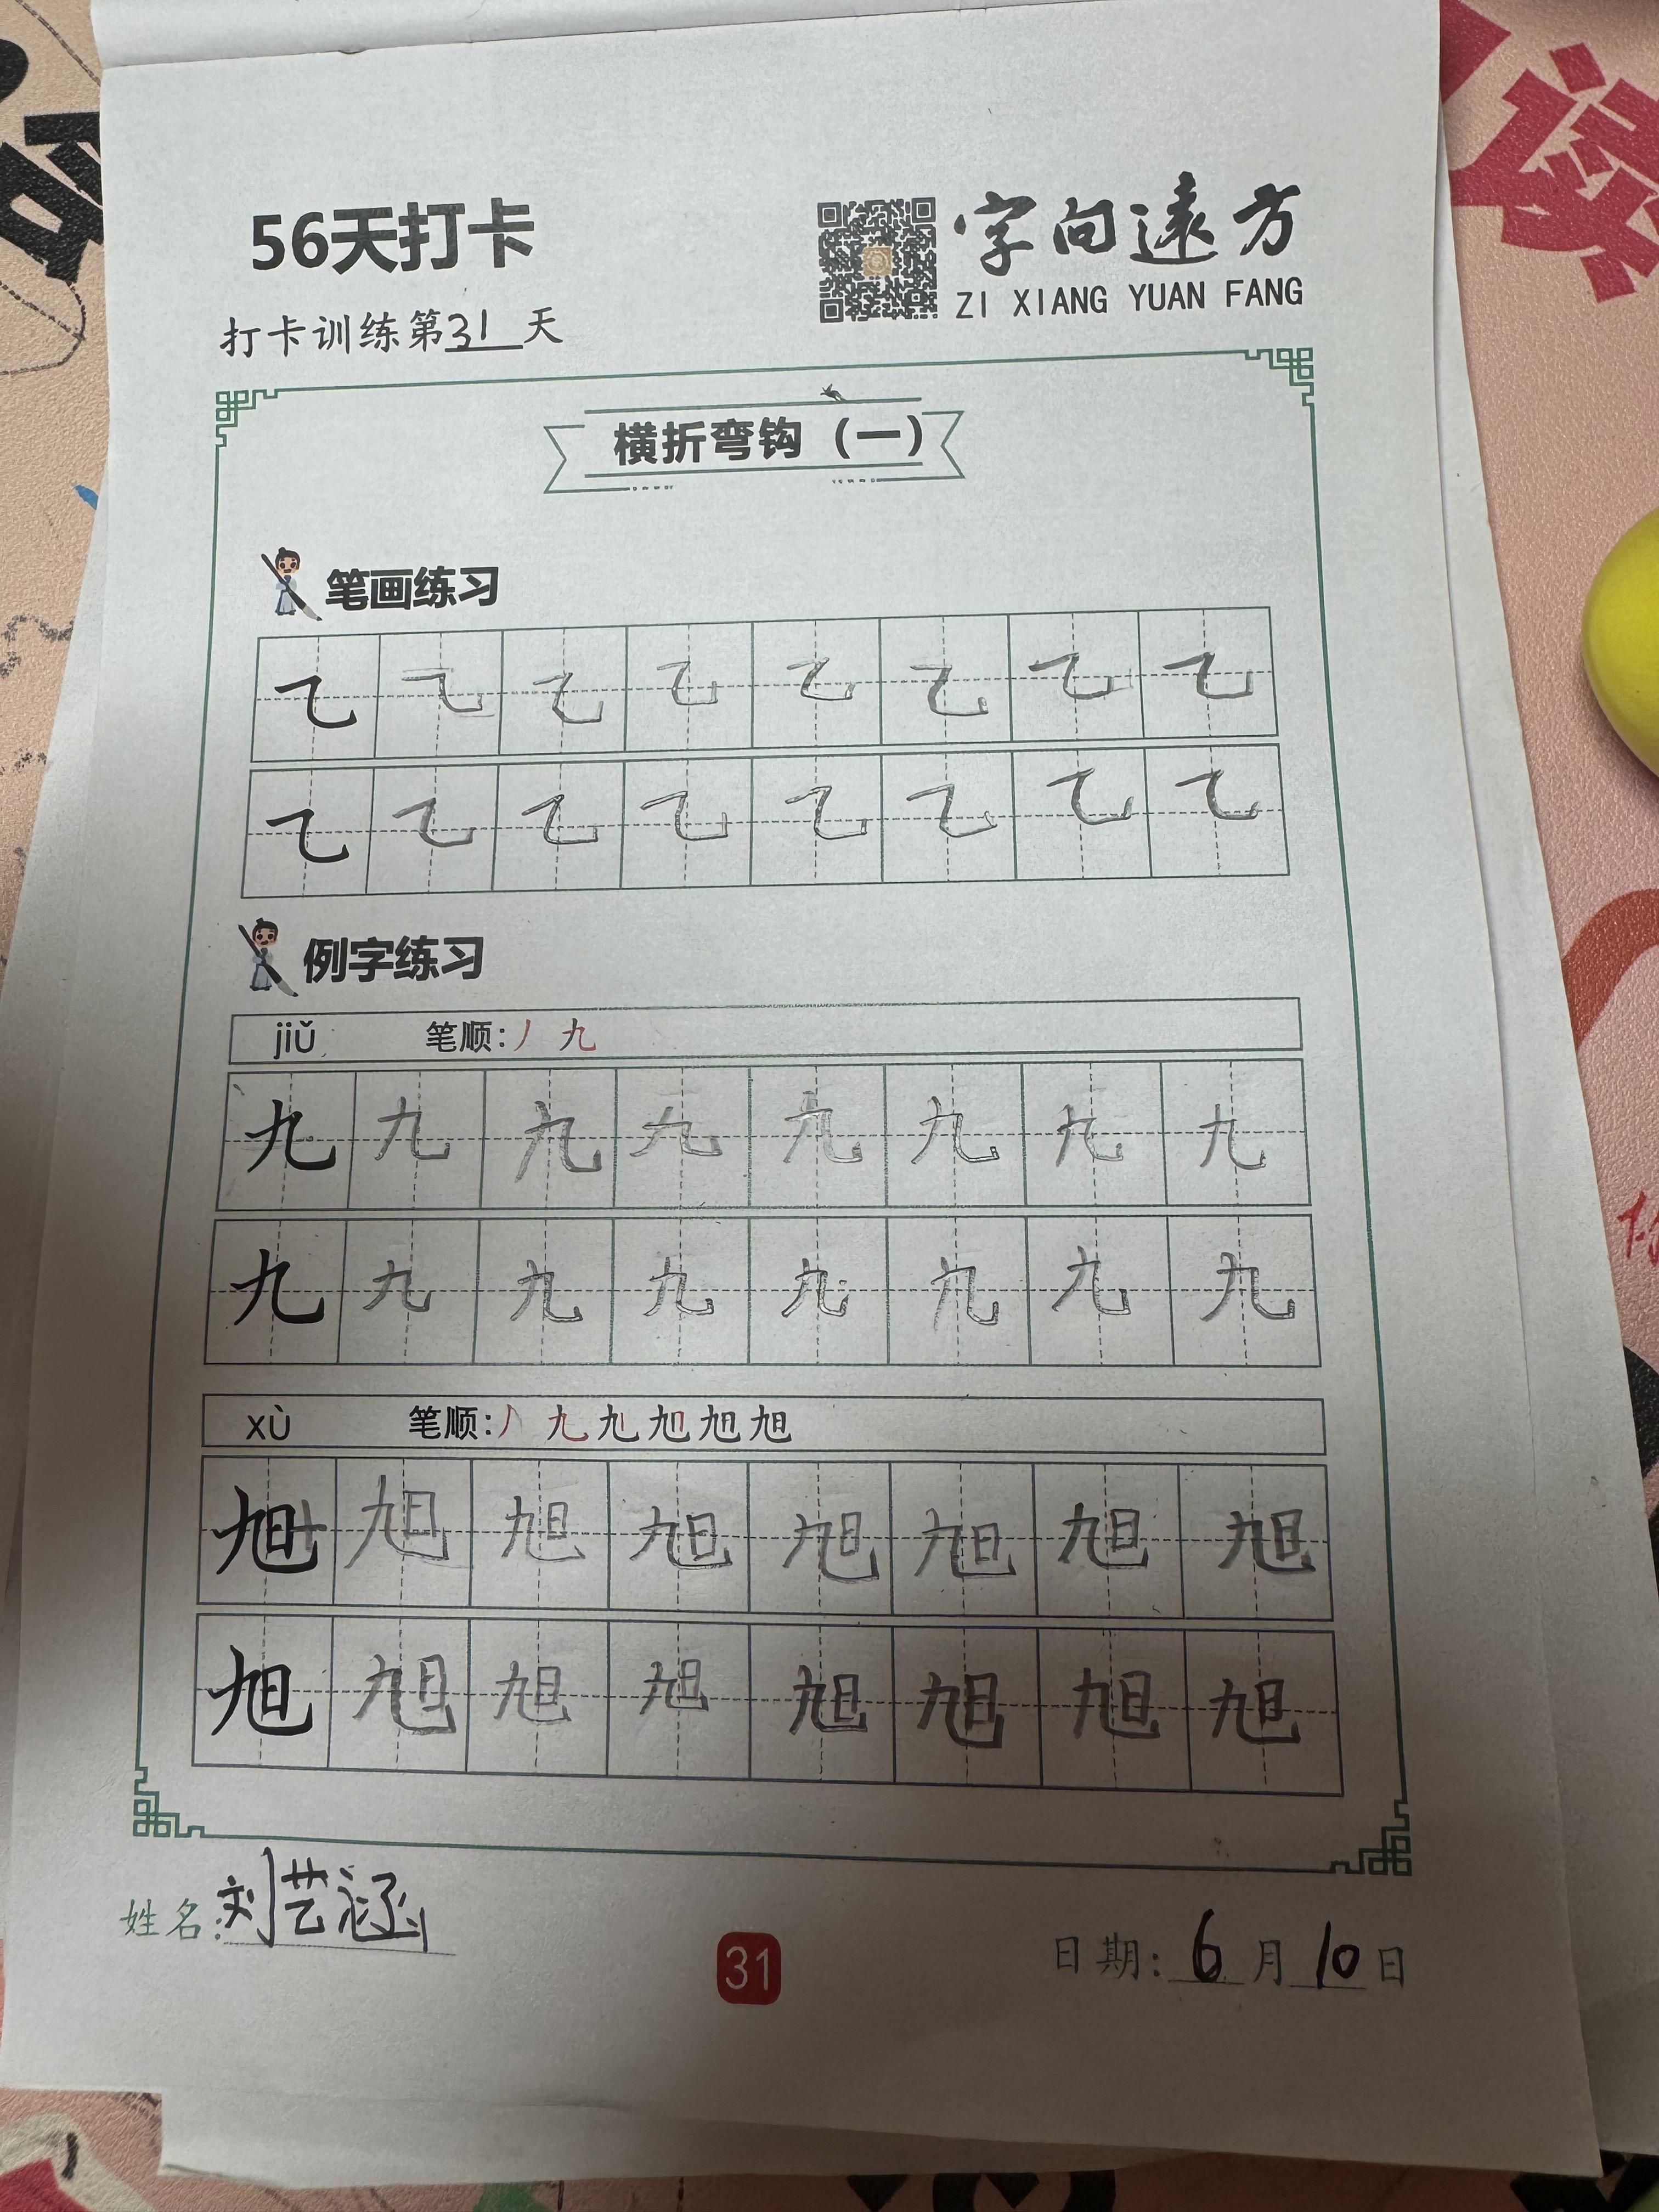 56天打卡
字向遠方
ZI XIANG YUAN FANG
打卡训练第31天
横折弯钩（一）
笔画练习
㇈ ㇈ ㇈ ㇈ ㇈ ㇈ ㇈ ㇈
㇈ ㇈ ㇈ ㇈ ㇈ ㇈ ㇈ ㇈
例字练习
jiǔ 笔顺：丿 九
九 九 九 九 九 九 九 九
九 九 九 九 九 九 九 九
xù 笔顺：丿 九 旭 旭 旭 旭
旭 旭 旭 旭 旭 旭 旭 旭
旭 旭 旭 旭 旭 旭 旭 旭
姓名：刘艺涵
31
日期：6月10日